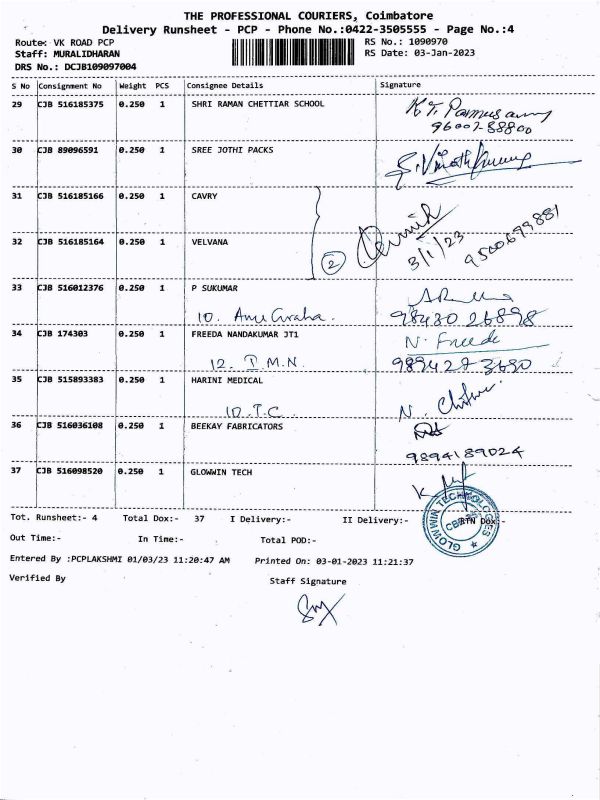 THE PROFESSIONAL COURIERS, Coimbatore
Delivery Runsheet - PCP - Phone No.:0422-3505555 - Page No.:4
Route: VK ROAD PCP RS No.: 1090970
Staff: MURALIDHARAN RS Date: 03-Jan-2023
DRS No.: DCJB109097004
S No Consignment No Weight PCS Consignee Details Signature
29 CJB 516185375 0.250 1 SHRI RAMAN CHETTIAR SCHOOL
30 CJB 89096591 0.250 1 SREE JOTHI PACKS
31 CJB 516185166 0.250 1 CAVRY
32 CJB 516185164 0.250 1 VELVANA
2 3/1/23 9500699881
33 CJB 516012376 0.250 1 P SUKUMAR
10. 98430 26898
34 CJB 174303 0.250 1 FREEDA NANDAKUMAR JT1 N. Freeda
12. T.M.N.
35 CJB 515893383 0.250 1 HARINI MEDICAL
10 T.C.
36 CJB 516036108 0.250 1 BEEKAY FABRICATORS
9894189024
37 CJB 516098520 0.250 1 GLOWWIN TECH
Tot. Runsheet:- 4 Total Dox:- 37 I Delivery:- II Delivery:- RTN Dox:-
Out Time:- In Time:- Total POD:-
Entered By :PCPLAKSHMI 01/03/23 11:20:47 AM Printed On: 03-01-2023 11:21:37
Verified By Staff Signature